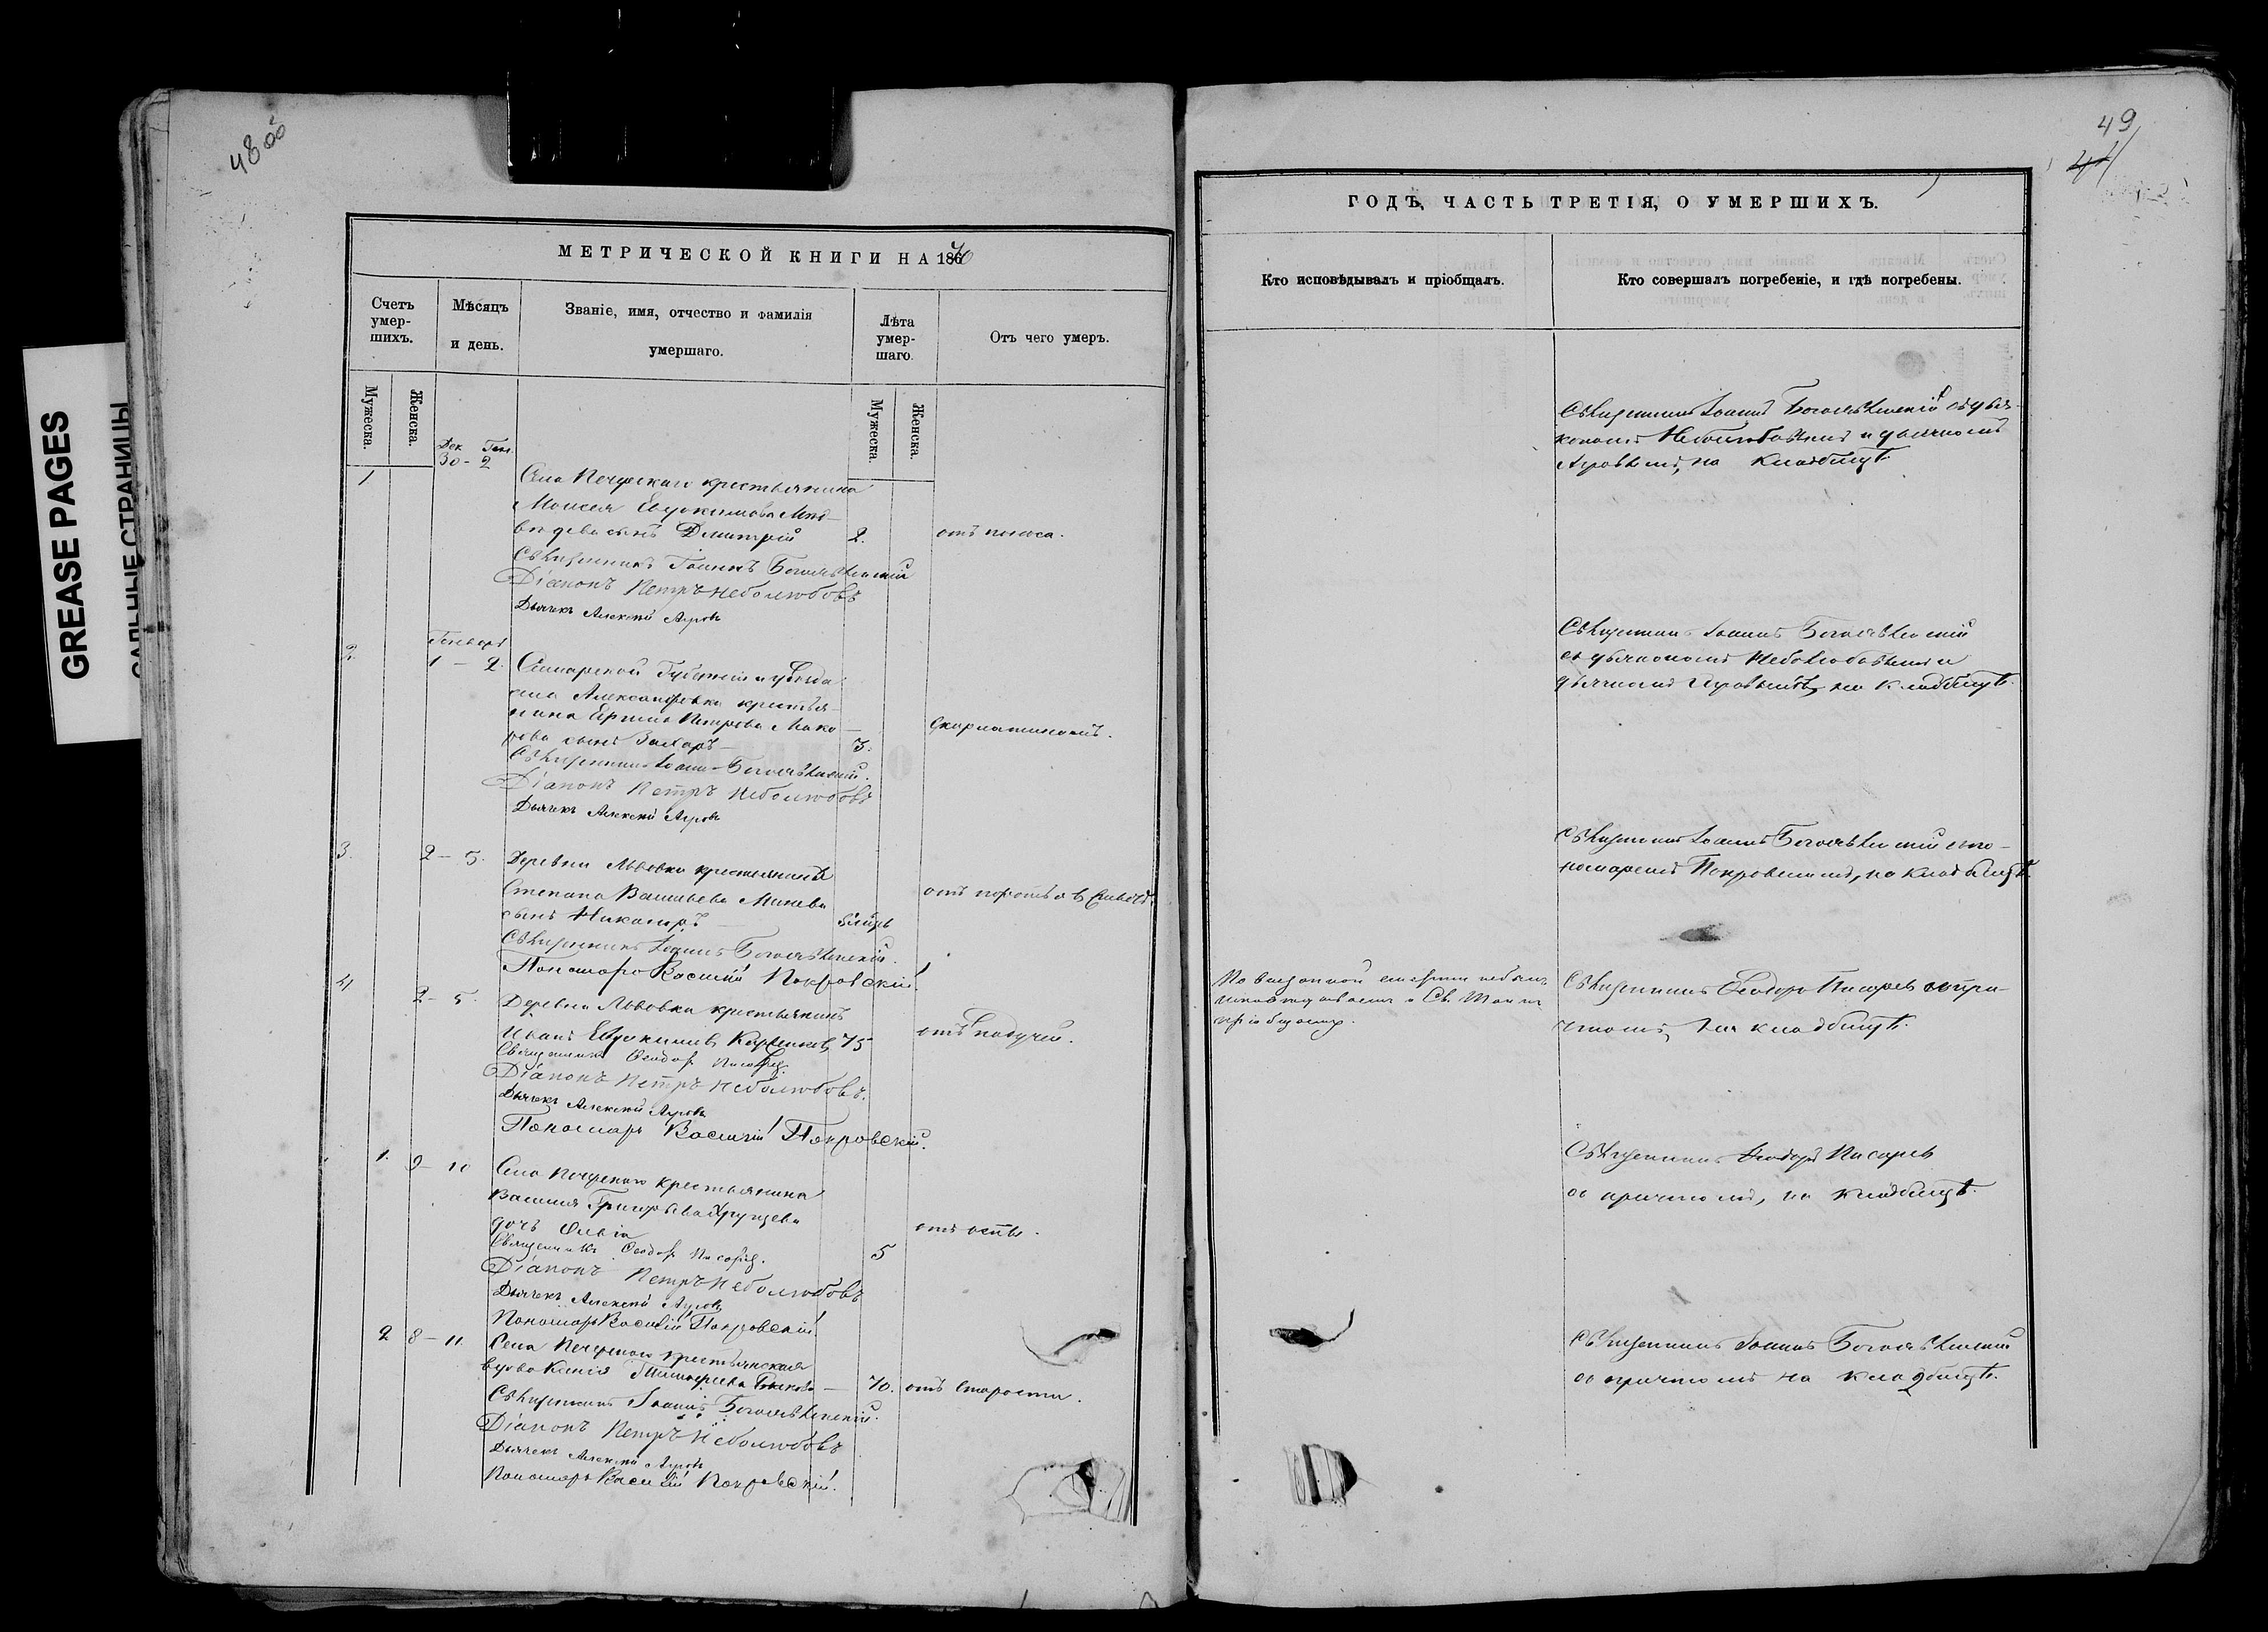 48 об
GREASE PAGES
САЛЬНЫЕ СТРАНИЦЫ
МЕТРИЧЕСКОЙ КНИГИ НА 1870
Счетъ умер-
шихъ.
Мѣсяцъ
и день.
Званіе, имя, отчество и фамилія
умершаго.
Лѣта
умер-
шаго.
Отъ чего умеръ.
Мужеска.
Женска.
Мужеска.
Женска.
Дек Ген.
30 - 2
1
Села Печерскаго крестьянина
Моисея Евдокимова Мед-
вѣдева сынъ Димитрій 2. отъ поноса.
Священникъ Іоаннъ Богоявленскій
Діаконъ Петръ Неболюбовъ
Дьячекъ Алексѣй Агровъ
Генварь
2. 1 - 2. Самарской Губерніи и уѣзда
села Александровки крестья-
нина Петрова Мака-
рова сынъ Захаръ 3. скарлатиною.
Священникъ Іоаннъ Богоявленскій.
Діаконъ Петръ Неболюбовъ
Дьячекъ Алексѣй Агровъ
3. 2 - 5. Деревни Львовки крестьянина
Степана Васильева
сынъ Никаноръ
Священникъ Іоаннъ Богоявленскій.
Пономарь Василій Покровскій.
4 2 - 5. Деревни Львовки крестьянинъ
Иванъ Евдокимовъ 75
Священникъ Ѳеодоръ Писаревъ.
Діаконъ Петръ Неболюбовъ.
Дьячекъ Алексѣй Агровъ
Пономарь Василій Покровскій.
1. 9 - 10 Села Печерскаго крестьянина
Василія Григорьева
дочь 5 отъ оспы.
Священникъ Ѳеодоръ Писаревъ.
Діаконъ Петръ Неболюбовъ
Дьячекъ Алексѣй Агровъ
Пономарь Василій Покровскій.
2 8 - 11. Села Печерскаго крестьянская
вдова Ксенія Тимофеева 70. отъ старости.
Священникъ Іоаннъ Богоявленскій.
Діаконъ Петръ Неболюбовъ
Дьячекъ Алексѣй Агровъ
Пономарь Василій Покровскій.
49
ГОДЪ, ЧАСТЬ ТРЕТІЯ, О УМЕРШИХЪ.
Кто исповѣдывалъ и пріобщалъ.
Кто совершалъ погребеніе, и гдѣ погребены.
Священникъ Іоаннъ Богоявленскій съ дья-
кономъ Неболюбовымъ и дьячкомъ
Агровымъ, на кладбищѣ.
Священникъ Іоаннъ Богоявленскій
съ дьякономъ Неболюбовымъ и
дьячкомъ Агровымъ, на кладбищѣ.
Священникъ Іоаннъ Богоявленскій съ по-
номаремъ Покровскимъ, на кладбищѣ.
По внезапной смерти небылъ
исповѣдываемъ и Св. Таинъ
пріобщаемъ.
Священникъ Ѳеодоръ Писаревъ съ при-
чтомъ, на кладбищѣ.
Священникъ Ѳеодоръ Писаревъ
съ причтомъ, на кладбищѣ.
Священникъ Іоаннъ Богоявленскій
съ причтомъ на кладбищѣ.